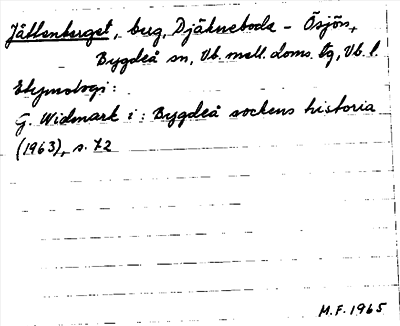 Jättenberget, berg, Djäkneboda - Ösjön,
Bygdeå sn, Vb. mell. doms. tg, Vb. l.
Etymologi:
G. Widmark i: Bygdeå sockens historia
(1963), s. 72
M.F. 1965